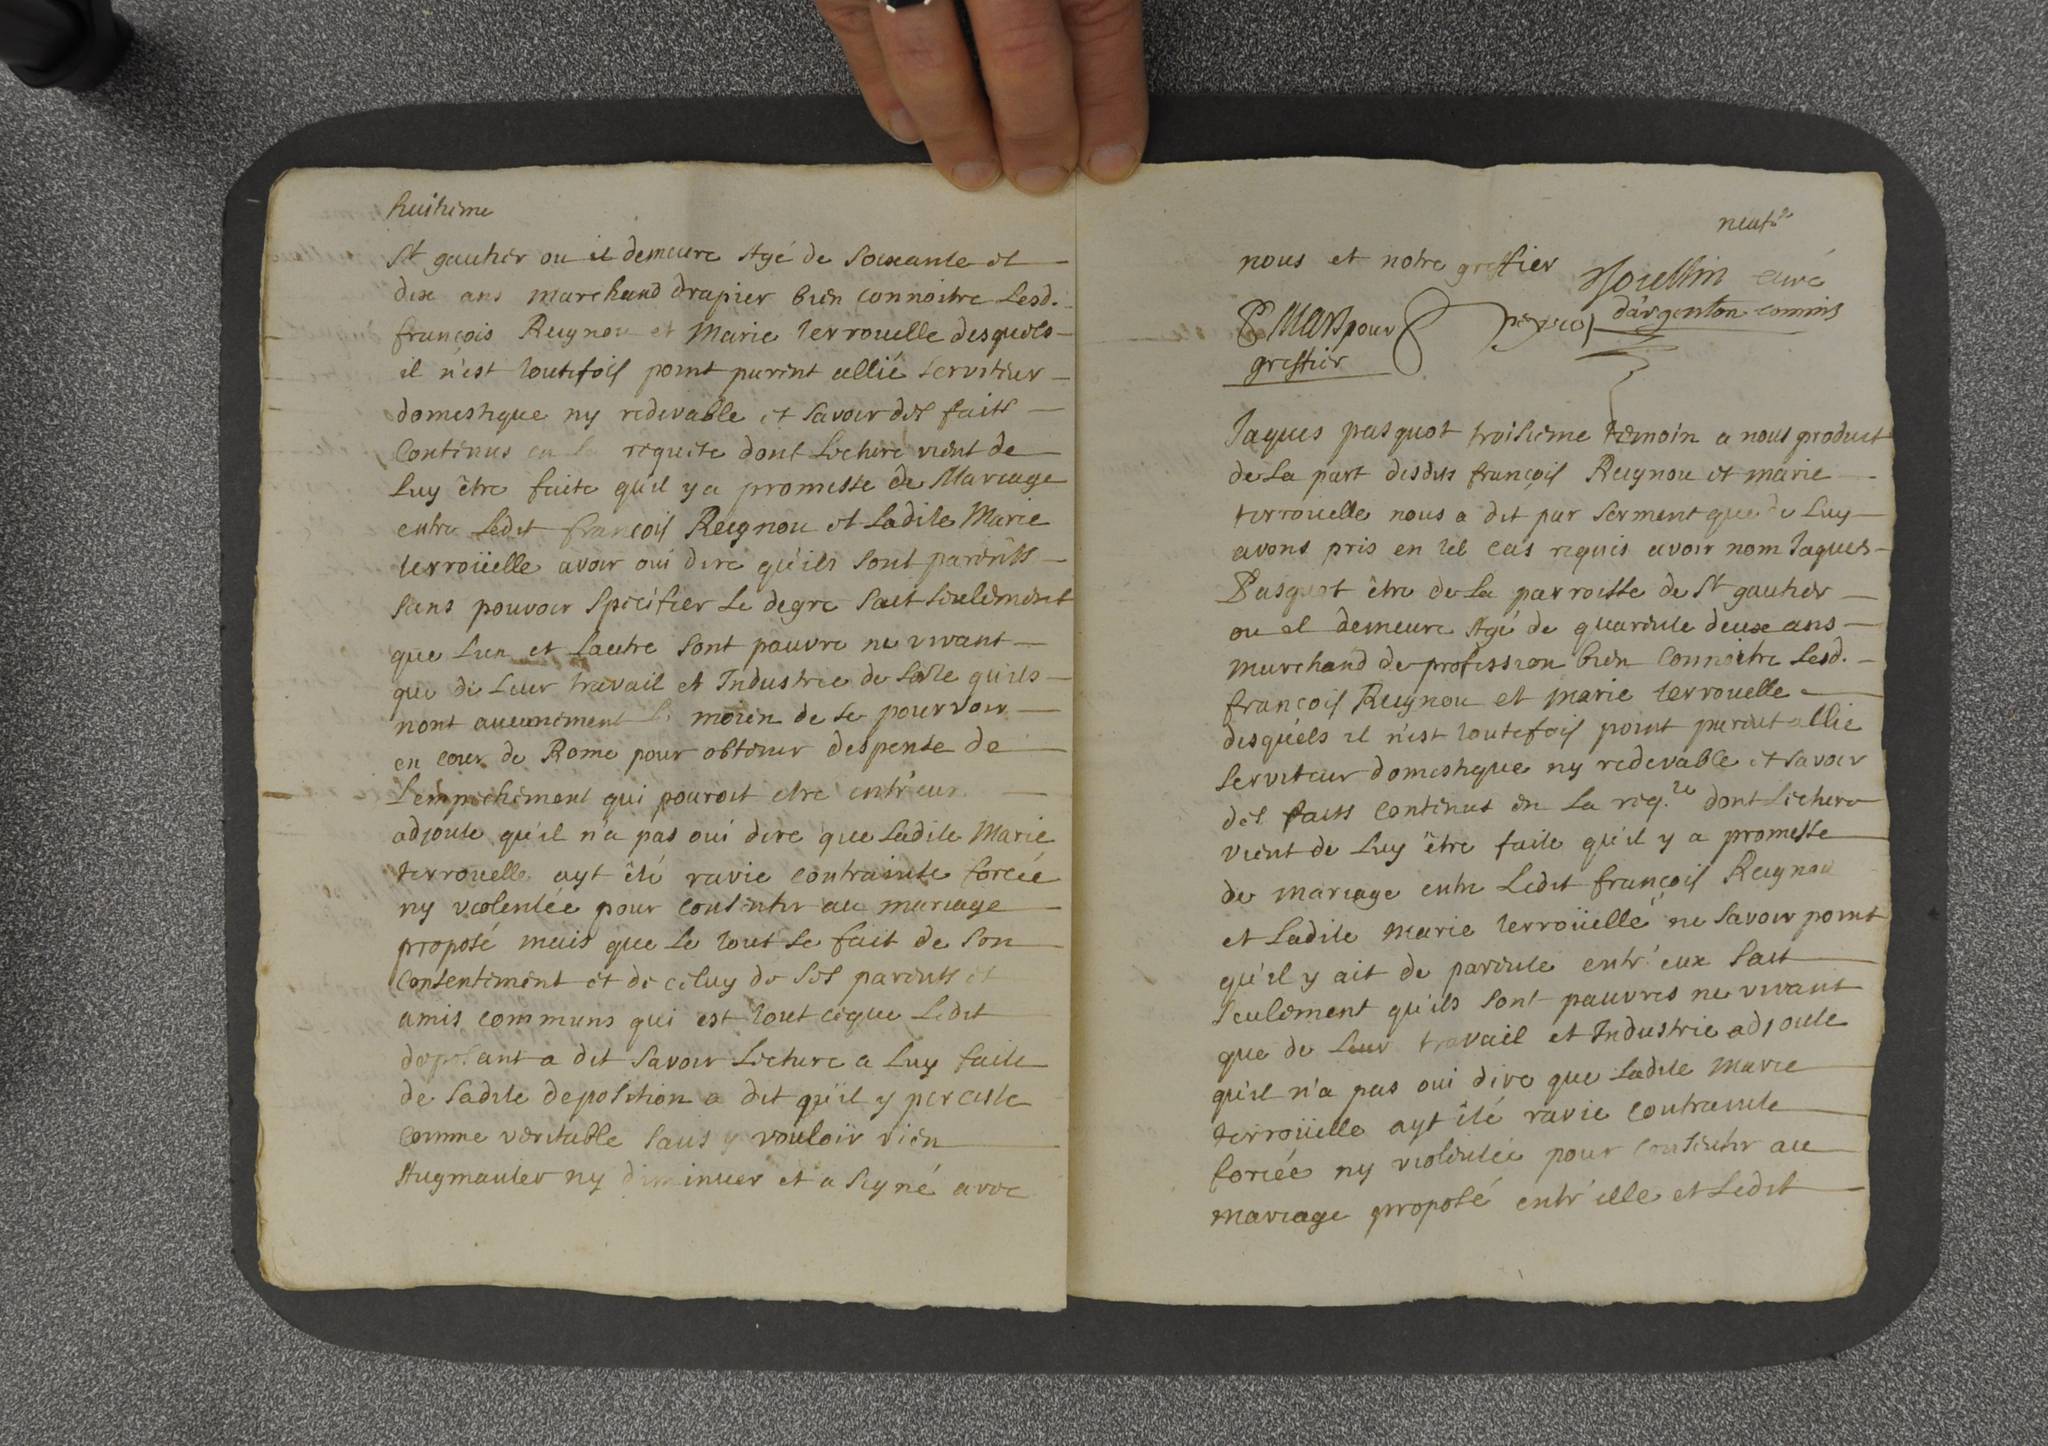 huitieme
St gautier ou il demeure Agé de soixante et
dix ans marchand drapier bien connoitre lesd.
françois Reignou et Marie terrouelle desquels
il n'est toutefois point parent allié serviteur
domestique ny redevable et savoir des faits
contenus en la requete dont lecture vient de
luy être faite qu'il y a promesse de Mariage
entre ledit françois Reignou et ladite Marie
terroüelle avoir oui dire qu'ils sont parents
sans pouvoir specifier le degre sait seulement
que lun et lautre sont pauvre ne vivant
que de leur travail et Industrie de sorte qu'ils
nont aucunement le moien de se pourvoir
en cour de Rome pour obtenir dispense de
L'empechement qui pouroit etre entr'eux
adjoute qu'il n'a pas oui dire que ladite Marie
terrouelle ayt êté ravie contrainte forcée
ny violentée pour consentir au mariage
proposé mais que le tout se fait de son
consentement et de celuy de ses parents et
amis communs qui est tout ceque ledit
deposant a dit savoir lecture a luy faite
de sadite deposition a dit qu'il y perciste
comme veritable sans y vouloir rien
Augmanter ny diminuer et a signé avec
neufe
nous et notre greffier
curé
d'argenton commis
P Mars pour
greffier
Jaques pasquot troisieme temoin a nous produit
de la part desdits françois Reignou et marie
terrouelle nous a dit par serment que de luy
avons pris en tel cas requis avoir nom Jaques
Pasquot être de la parroisse de St gautier
ou il demeure Agé de quarente deux ans
marchand de profession bien connoitre lesd.
françois Reignou et marie terrouelle
desquels il n'est toutefois point parent allié
serviteur domestique ny redevable et savoir
des faits contenus en la req.te dont lecture
vient de luy être faite qu'il y a promesse
de mariage entre ledit françois Reignou
et ladite marie terroüelle ne savoir point
qu'il y ait de parente entr'eux sait
seulement qu'ils sont pauvres ne vivant
que de leur travail et Industrie adjoute
qu'il n'a pas oui dire que ladite Marie
terroüelle ayt êté ravie contrainte
forcée ny violentée pour consentir au
mariage proposé entr'elle et ledit